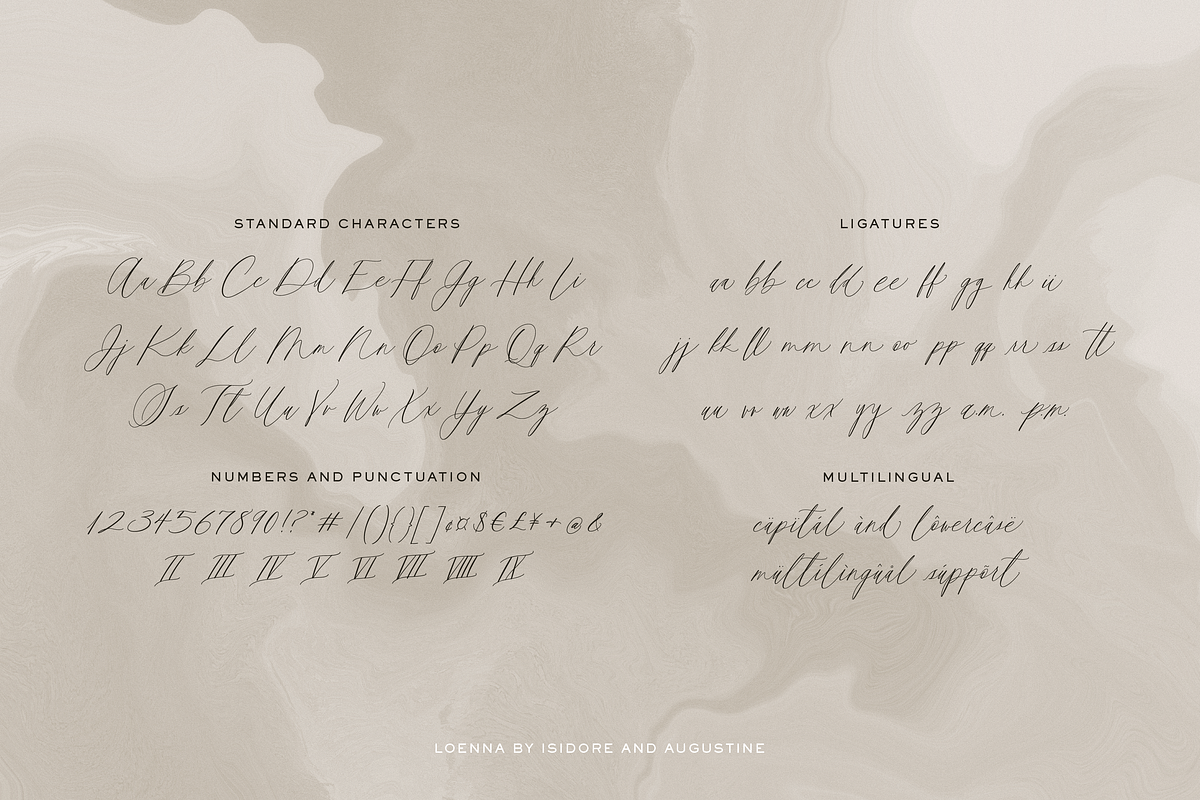 STANDARD CHARACTERS
Aa Bb Cc Dd Ee Ff Gg Hh Ii
Jj Kk Ll Mm Nn Oo Pp Qq Rr
Ss Tt Uu Vv Ww Xx Yy Zz
NUMBERS AND PUNCTUATION
1234567890!?"#/(){}[]¢¤$€£¥+@&
II III IV V VI VII VIII IX
LIGATURES
aa bb cc dd ee ff gg hh ii
jj kk ll mm nn oo pp qq rr ss tt
uu vv ww xx yy zz a.m. p.m.
MULTILINGUAL
cäpitál ànd lôwercâsë
mültilingûål súppõrt
LOENNA BY ISIDORE AND AUGUSTINE